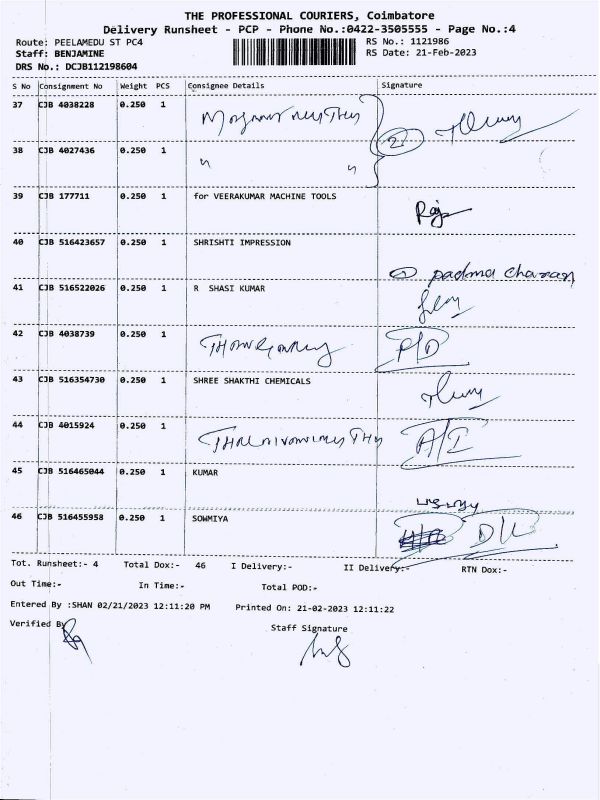 THE PROFESSIONAL COURIERS, Coimbatore
Delivery Runsheet - PCP - Phone No.:0422-3505555 - Page No.:4
Route: PEELAMEDU ST PC4 RS No.: 1121986
Staff: BENJAMINE RS Date: 21-Feb-2023
DRS No.: DCJB112198604
S No Consignment No Weight PCS Consignee Details Signature
37 CJB 4038228 0.250 1
38 CJB 4027436 0.250 1 " " 2
39 CJB 177711 0.250 1 for VEERAKUMAR MACHINE TOOLS
Raj
40 CJB 516423657 0.250 1 SHRISHTI IMPRESSION
padma charan
41 CJB 516522026 0.250 1 R SHASI KUMAR
42 CJB 4038739 0.250 1 P/D
43 CJB 516354730 0.250 1 SHREE SHAKTHI CHEMICALS
44 CJB 4015924 0.250 1 A/I
45 CJB 516465044 0.250 1 KUMAR
46 CJB 516455958 0.250 1 SOWMIYA D/L
Tot. Runsheet:- 4 Total Dox:- 46 I Delivery:- II Delivery:- RTN Dox:-
Out Time:- In Time:- Total POD:-
Entered By :SHAN 02/21/2023 12:11:20 PM Printed On: 21-02-2023 12:11:22
Verified By Staff Signature